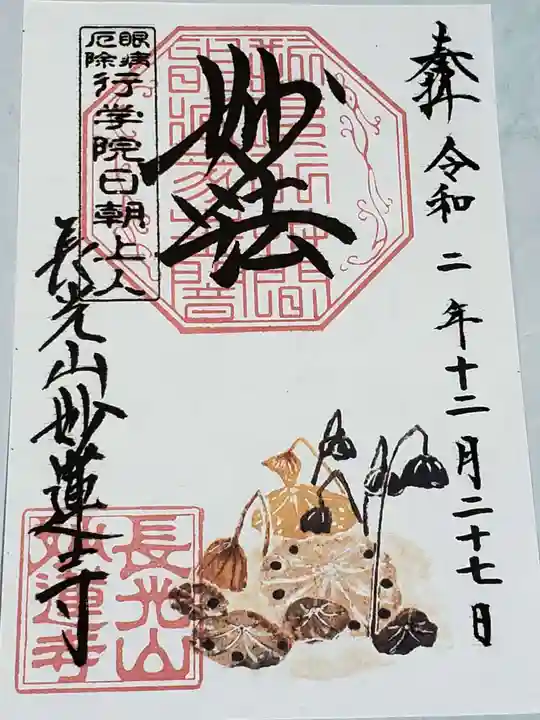 奉拝 令和二年十二月二十七日
妙法
眼病
厄除
行学院日朝上人
長光山妙蓮寺
長光山
妙蓮寺